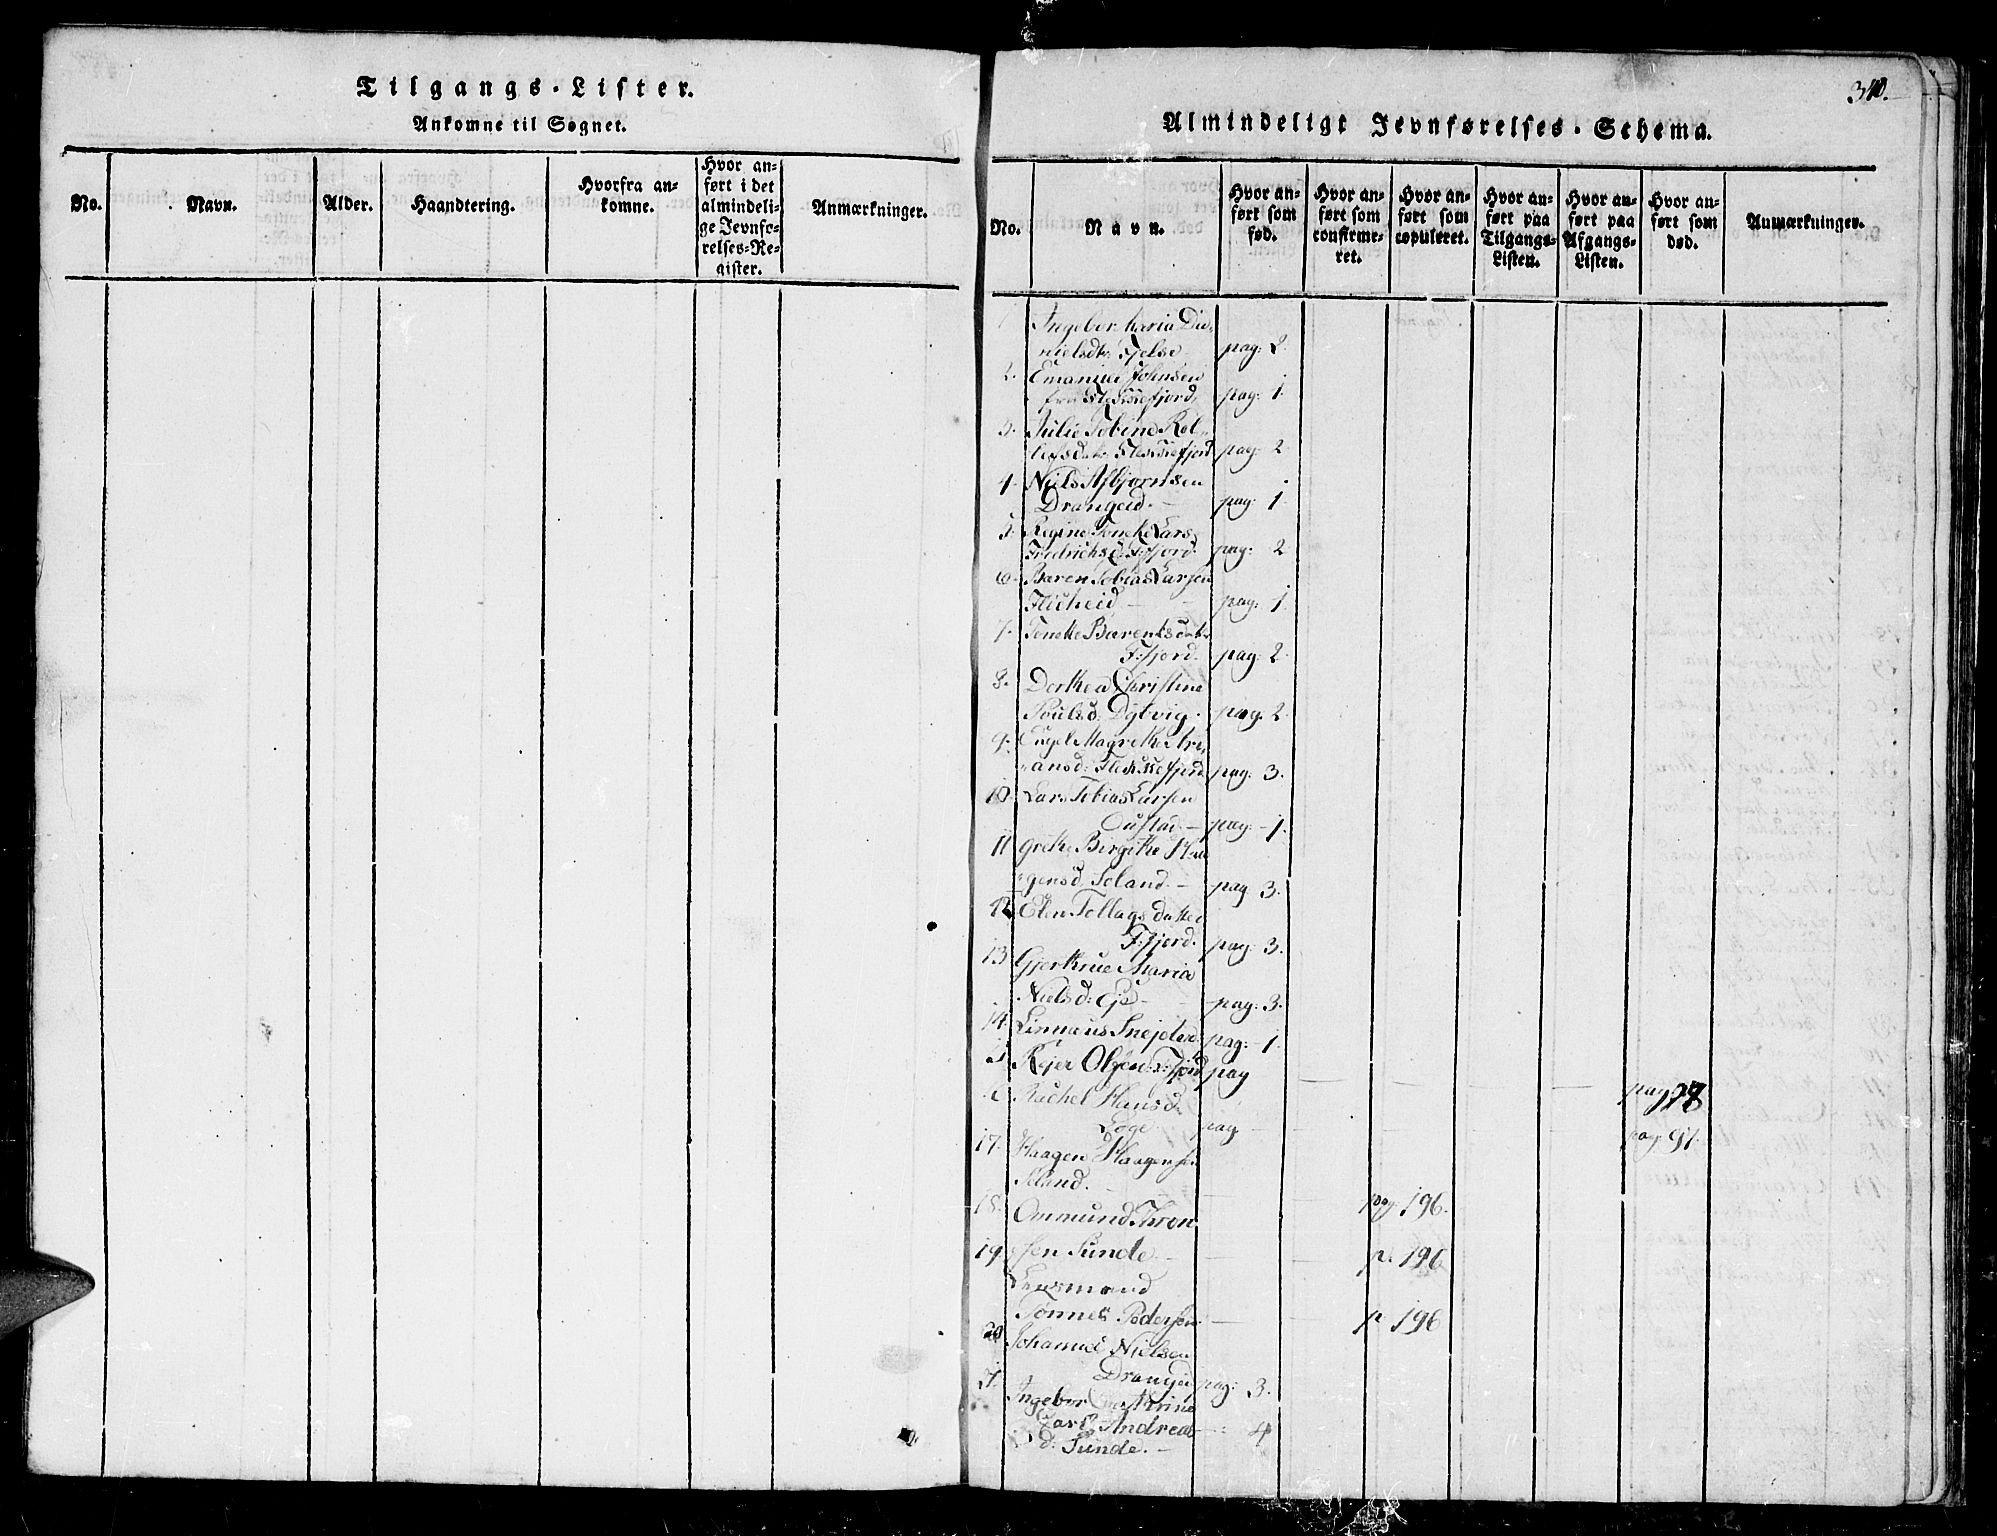 Tilgangs-Lister.
Ankomne til Sognet.
No.
Navn.
Alder.
Haandtering.
Hvorfra an-
komne.
Hvor an-
ført i det
almindeli-
ge Jevnfø-
relses-Re-
gister.
Anmærkninger.
340.
Almindeligt Jevnførelses-Schema.
No.
Navn.
Hvor an-
ført som
fød.
Hvor an-
ført som
confirme-
ret.
Hvor an-
ført som
copuleret.
Hvor an-
ført paa
Tilgangs-
Listen.
Hvor an-
ført paa
Afgangs-
Listen.
Hvor an-
ført som
død.
Anmærkninger.
1 Ingebor Maria Da-
nielsdtr. Fjelse pag: 2.
2. Emanuel Johnsen
fra Fleckefjord, pag: 1.
3. Julie Tobine Rol-
Fleckefjord pag: 2
4. Niels Asbjørnsen
Drangeid. - pag: 1.
5. Regine Toneke Lars
Fredrichsd. F:fjord. pag: 2
6. Baren Tobias Larsen
Flicheid - pag: 1
7. Toneke Barentsdatr
F:fjord. pag: 2.
8. Dorthea Christine
Poulsd. Dybvig. pag. 2.
9. Engel Magrethe Ari-
ansd: Fleckefjord. pag: 3.
10. Lars Tobias Larsen
Oustad. - pag: - 1.
11 Grethe Birgithe Haa-
gensd. Seland. - pag 3.
12. Elen Tollagsdatter
F:fjord. pag: 3.
13. Gjerthrue Maria
Nielsd: - pag: 3.
14. Linnæus pag: - 1.
Rejer Olsen. F:fjord pag pag 128
Rachel Hansd.
Loge pag - pag. 97.
17. Haagen Haagensen
Seland. - pag 196.
18. Ommund Thron
19. sen Sunde - p. 196
Lensmand
Tønnes Pedersen - p 196
20 Johannes Nielsen
Drangeid pag: 3.
21. Ingebor Cathrine
Lars Andreas - : 4
d. Sunde. -